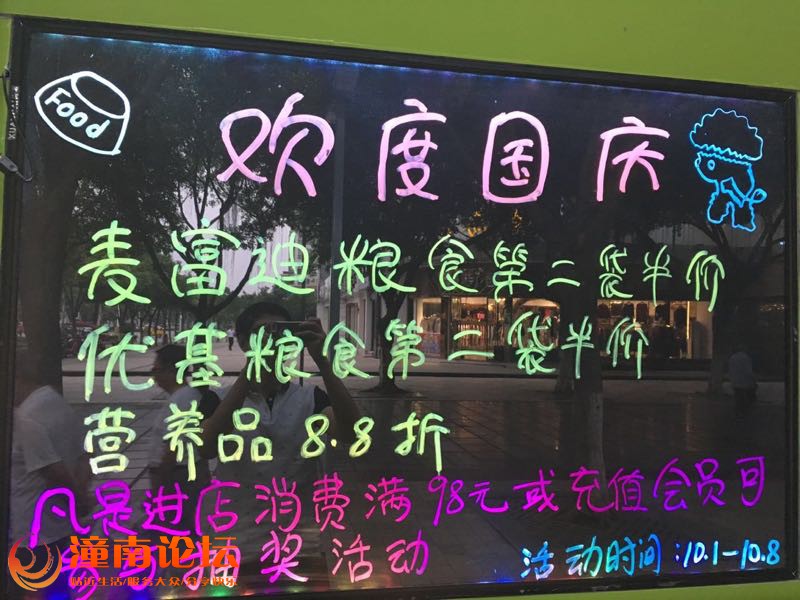 Food
欢度国庆
麦富迪粮食第二袋半价
优基粮食第二袋半价
营养品 8.8折
凡是进店消费满98元或充值会员可
抽奖活动
活动时间:10.1-10.8
潼南论坛
贴近生活/服务大众/分享快乐